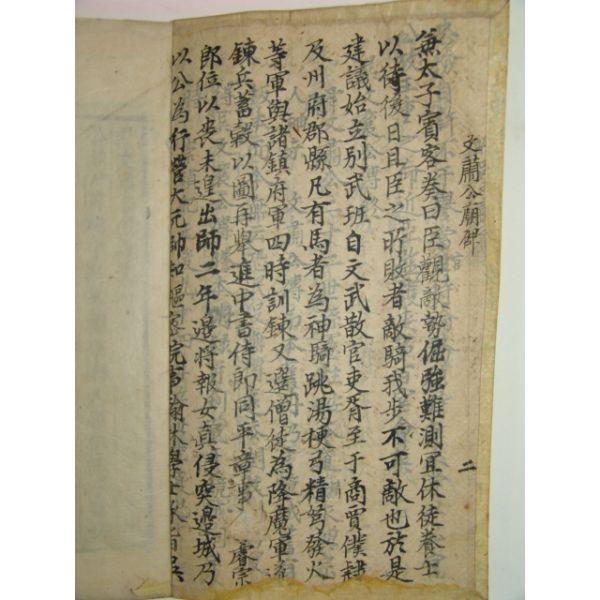 兼太子賓客奏曰臣觀敵勢倔強難測宜休徒養士
以待後日且臣之所敗者敵騎我步不可敵也於是
建議始立別武班自文武散官吏胥至于商賈僕隸
及州府郡縣凡有馬者為神騎跳湯梗弓精弩發火
等軍與諸鎮府軍四時訓鍊又選僧徒為降魔軍
鍊兵蓄穀以圖再舉進中書侍郎同平章事 睿宗
即位以喪未遑出師二年邊將報女真侵突邊城乃
以公為行營大元帥知樞密院事翰林學士承旨吳
文肅公廟碑
二